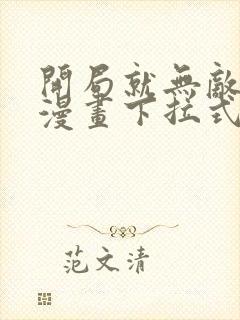 開局就無敵
漫畫下拉式
范文清